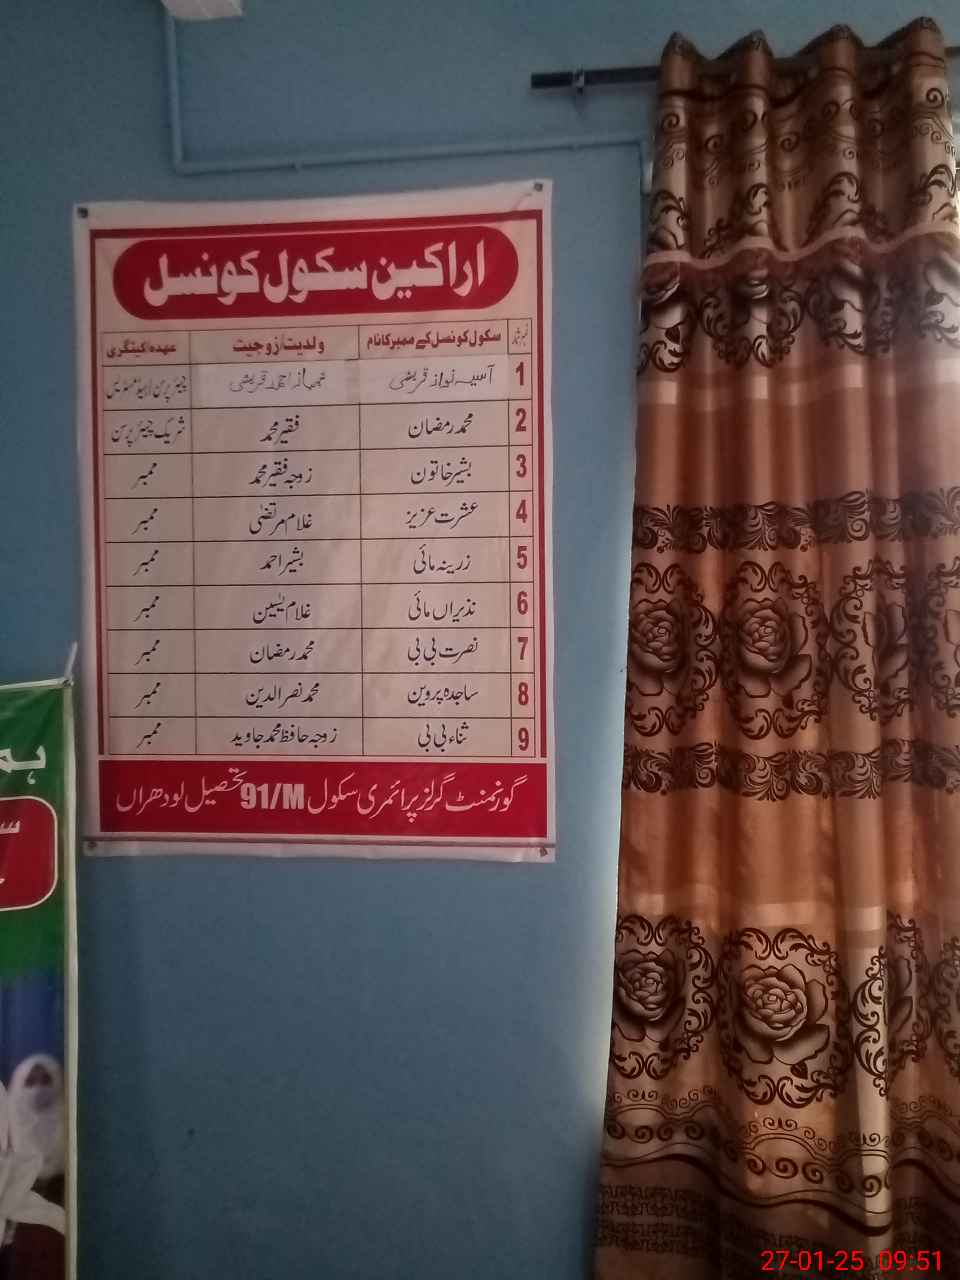 اراکین سکول کونسل
نمبر شمار سکول کونسل کے ممبر کا نام ولدیت/زوجیت عہدہ/کیٹگری
1 آسیہ نواز قریشی شہباز احمد قریشی چیئر پرسن/ہیڈ مسٹریس
2 محمد رمضان فقیر محمد شریک چیئر پرسن
3 بشیر خاتون زوجہ فقیر محمد ممبر
4 عشرت عزیز غلام مرتضیٰ ممبر
5 زرینہ مائی بشیر احمد ممبر
6 نذیراں مائی غلام یٰسین ممبر
7 نصرت بی بی محمد رمضان ممبر
8 ساجدہ پروین محمد نصر الدین ممبر
9 ثناء بی بی زوجہ حافظ محمد جاوید ممبر
گورنمنٹ گرلز پرائمری سکول 91/M تحصیل لودھراں
27-01-25 09:51